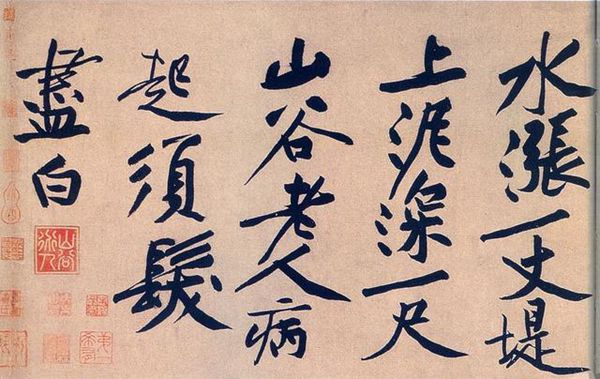 水漲一丈堤
上泥深一尺
山谷老人病
起須髮
盡白
山谷道人